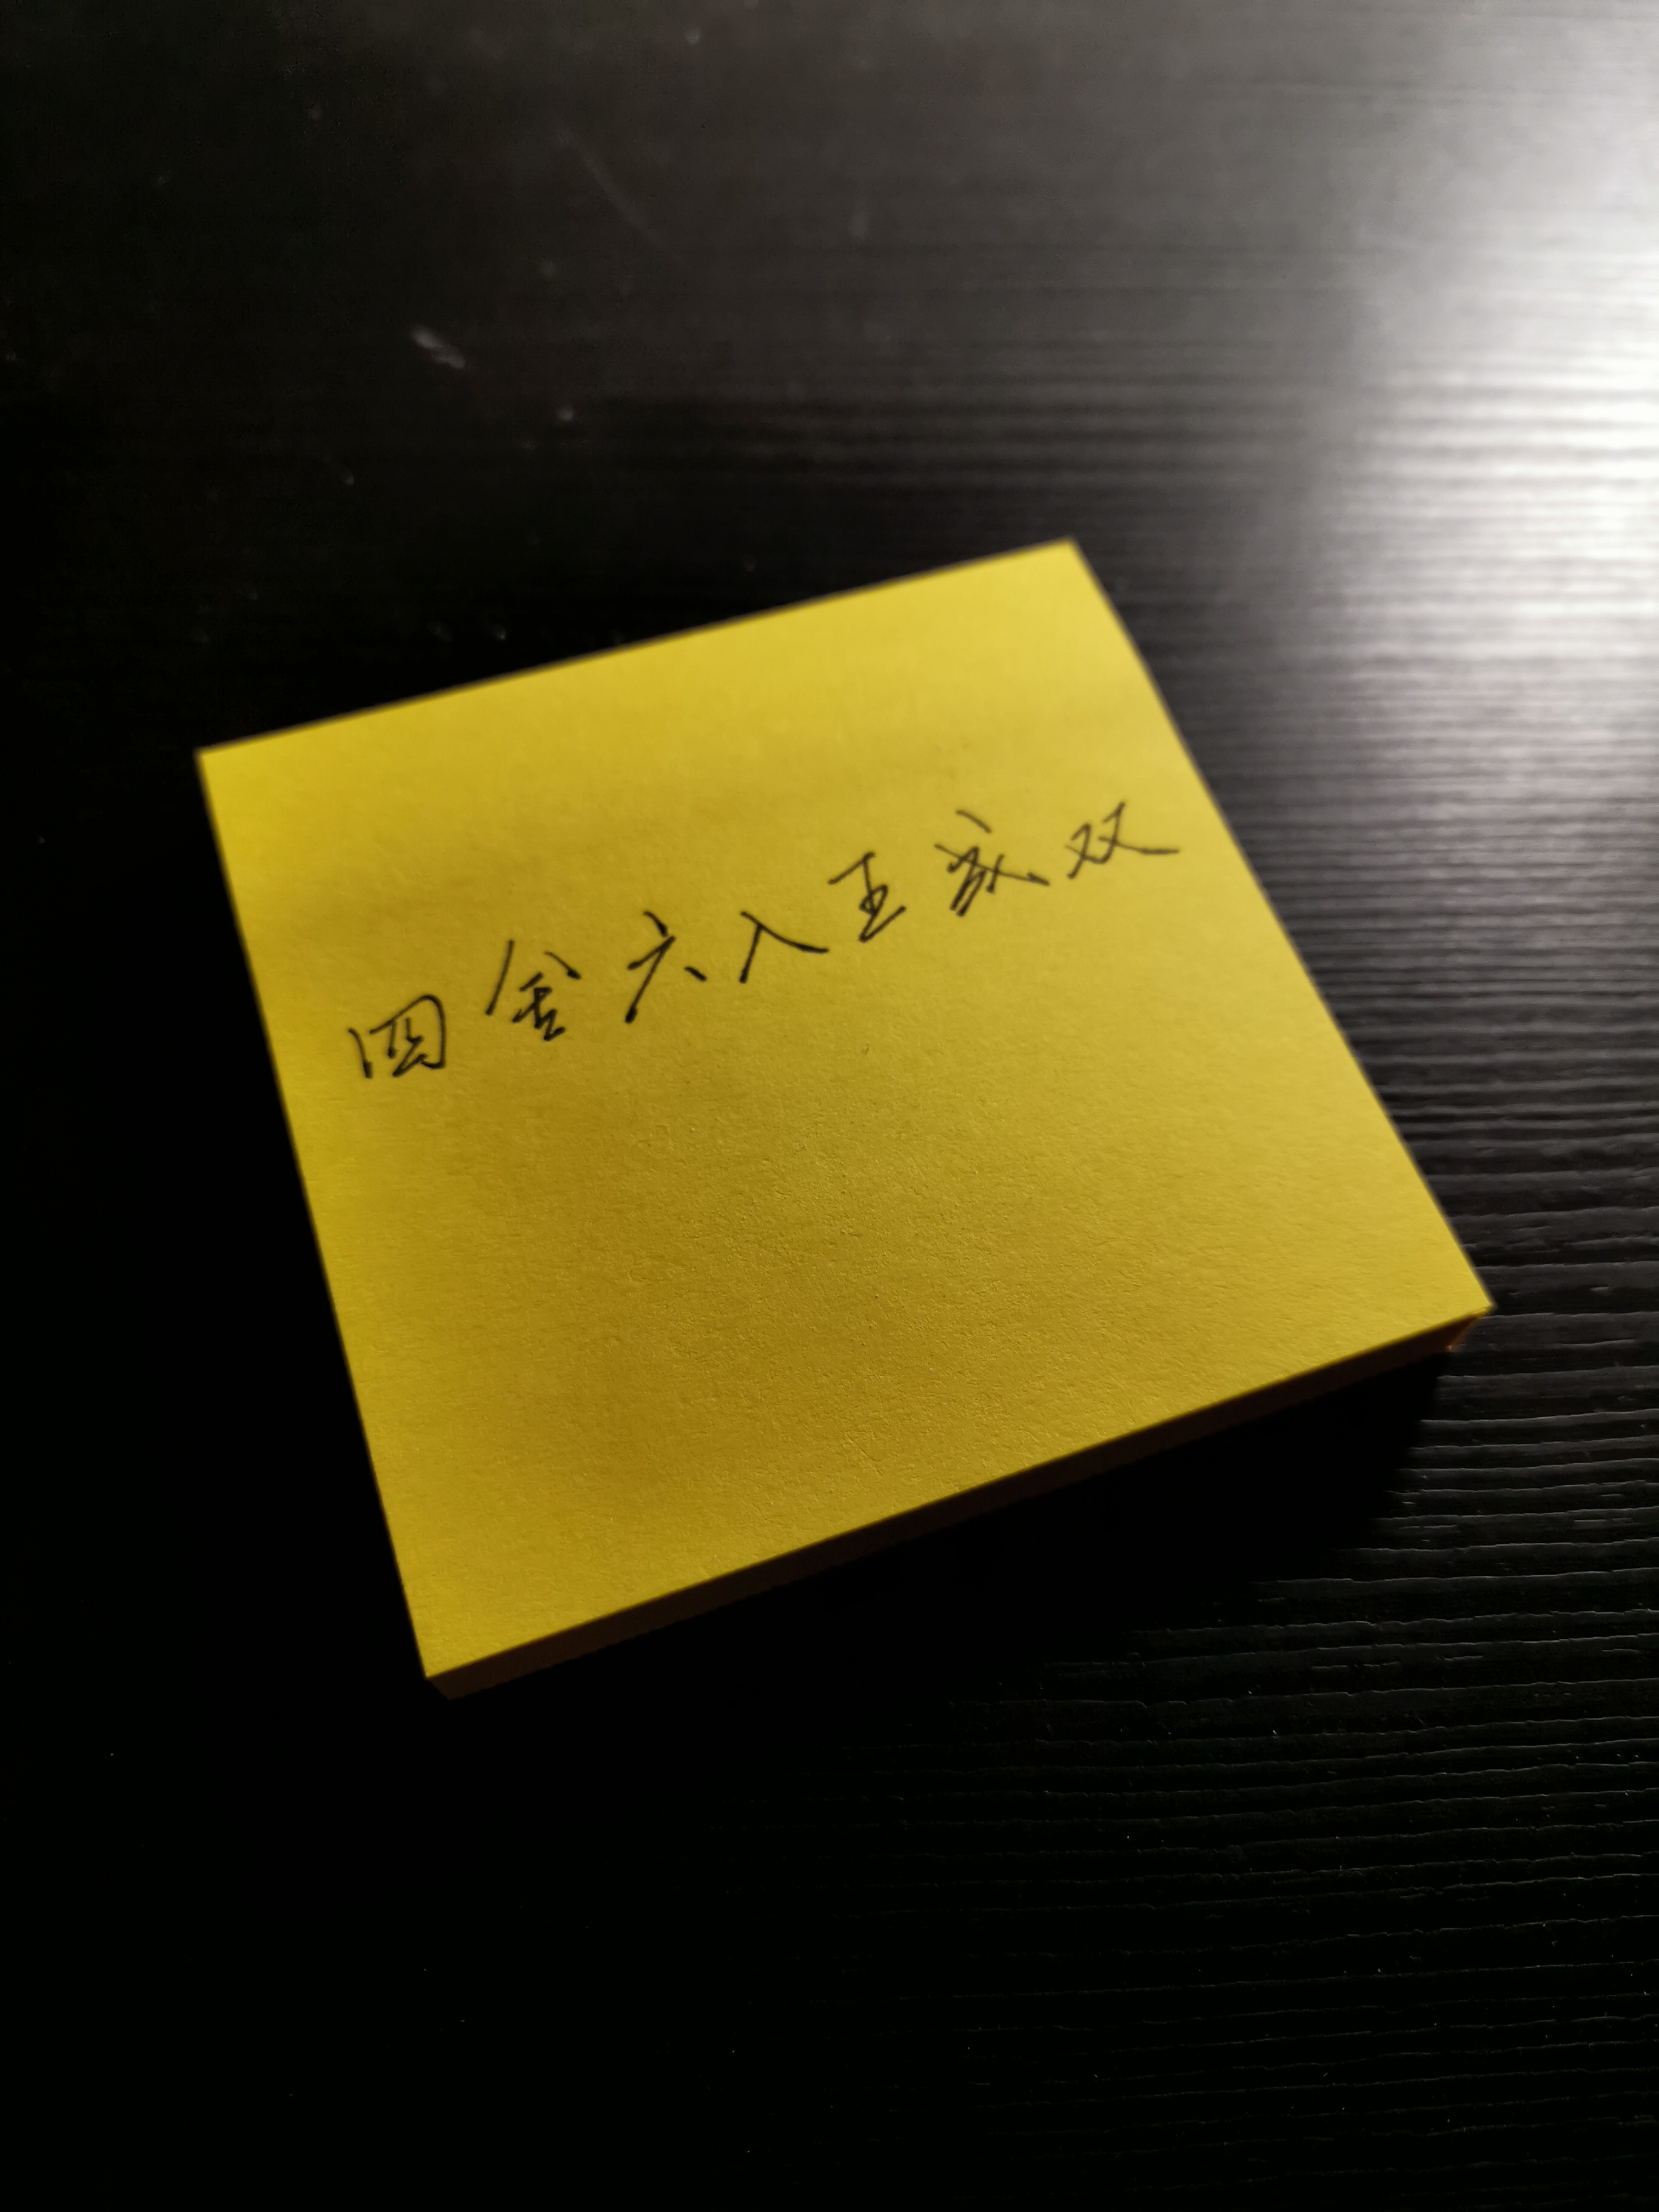 四舍六入五成双